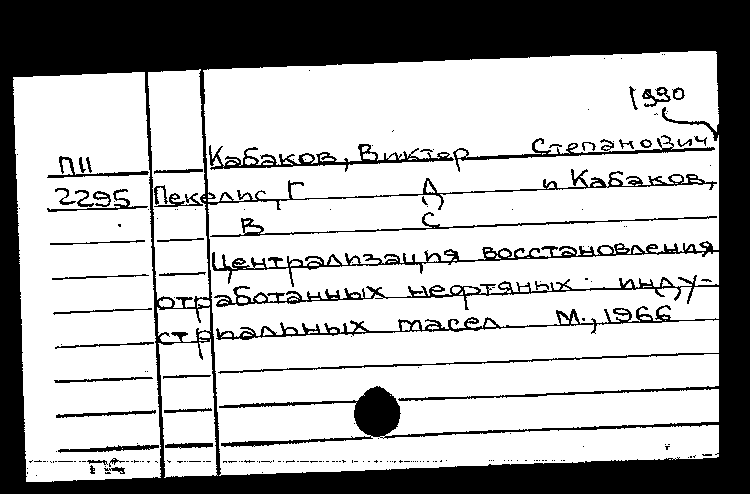 1930
П11 Кабаков, Виктор Степанович
2295 Пекелис, Г Д и Кабаков,
В С
Централизация восстановления
отработанных нефтяных инду-
стриальных масел М., 1966